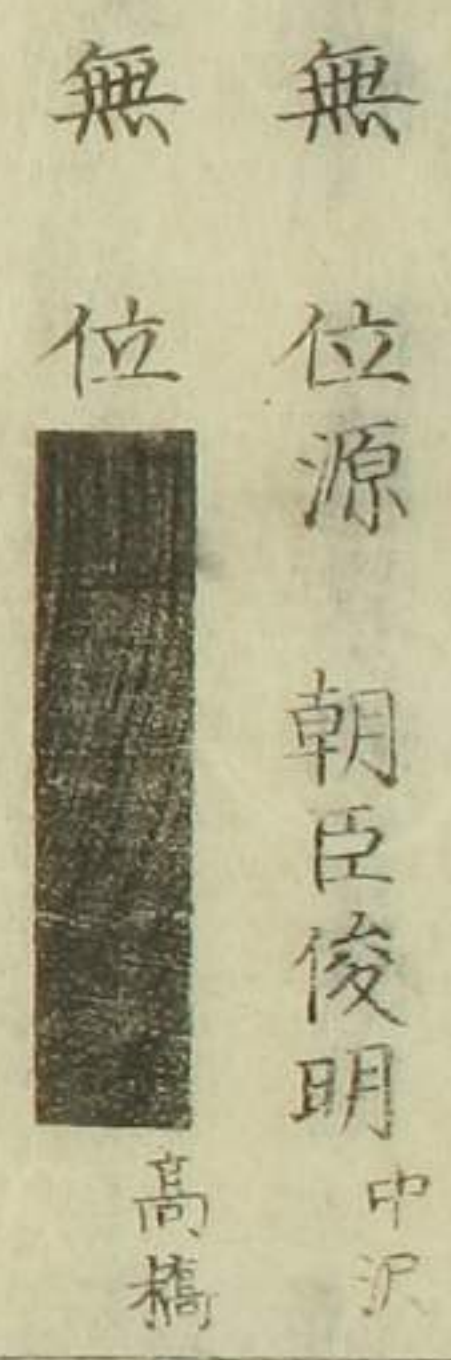 無位源朝臣俊明
中沢
無位
高橋